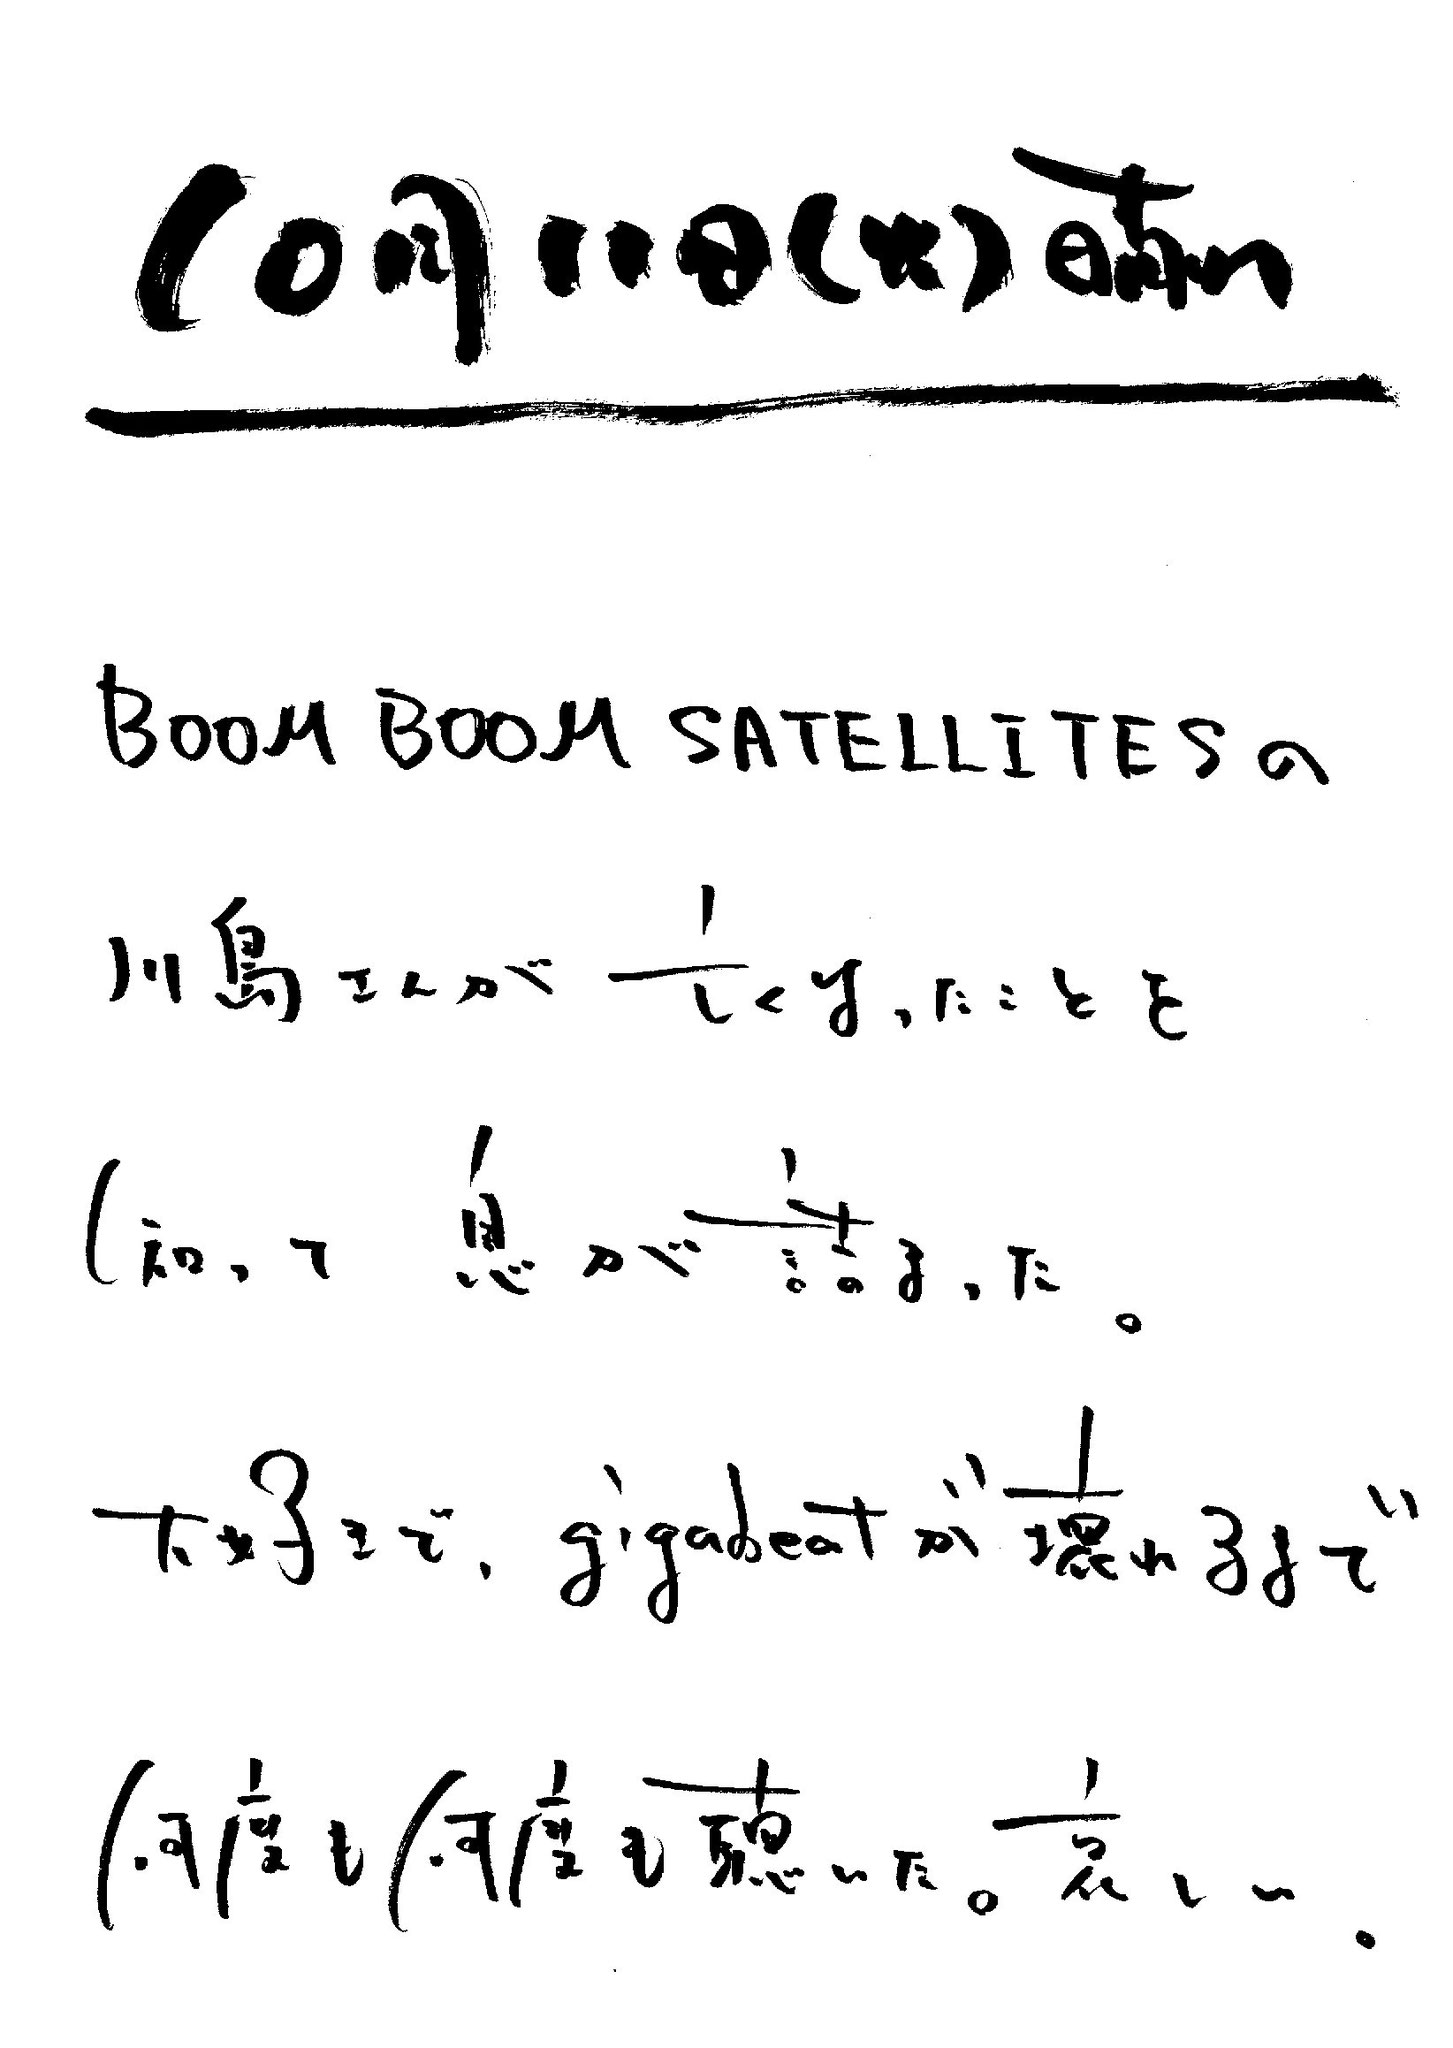 10月11日(火)晴れ
BOOM BOOM SATELLITESの
川島さんが亡くなったことを
知って息が詰まった。
大好きで、gigabeatが壊れるまで
何度も何度も聴いた。哀しい.